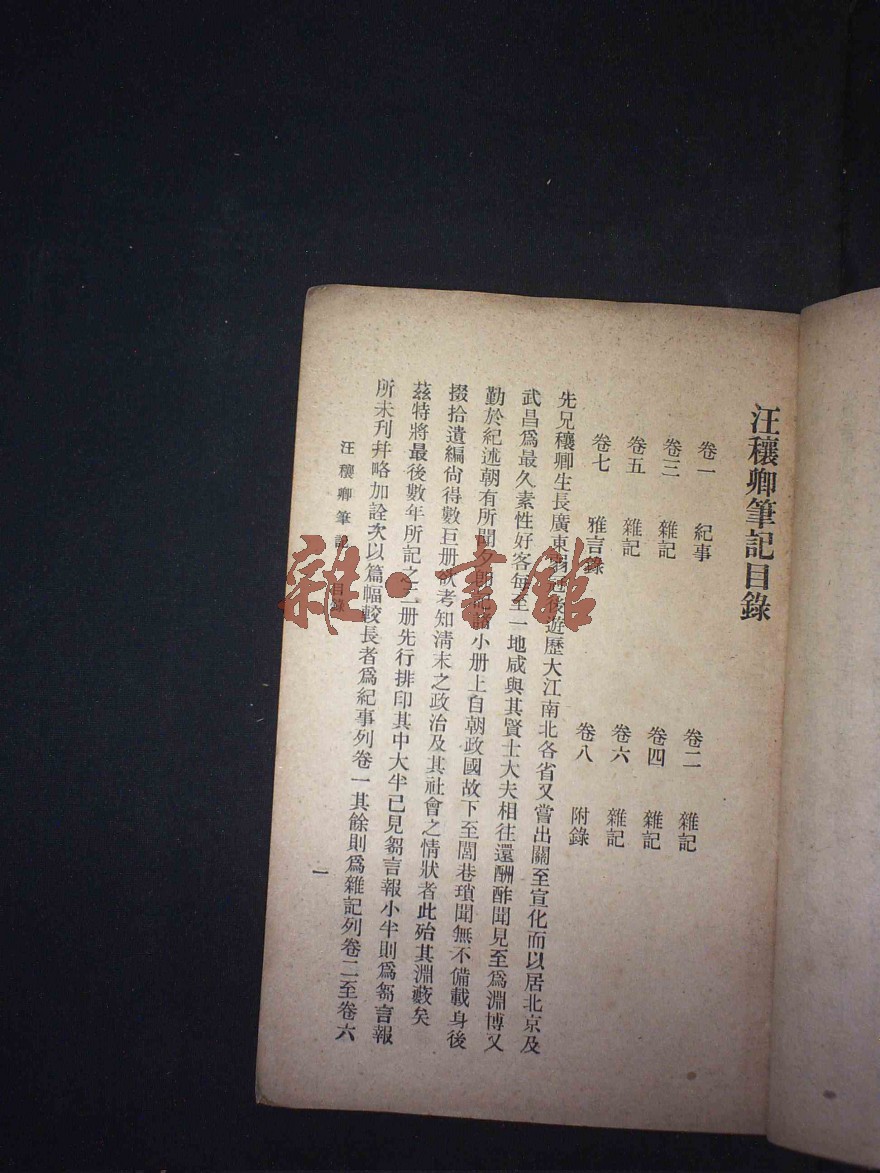 汪穰卿筆記目錄
卷一 紀事 卷二 雜記
卷三 雜記 卷四 雜記
卷五 雜記 卷六 雜記
卷七 雅言錄 卷八 附錄
先兄穰卿生長廣東弱冠後遊歷大江南北各省又嘗出關至宣化而以居北京及
武昌爲最久素性好客每至一地咸與其賢士大夫相往還酬酢聞見至爲淵博又
勤於紀述朝有所聞夕即記諸小册上自朝政國故下至閭巷瑣聞無不備載身後
掇拾遺編尙得數巨册欲考知淸末之政治及其社會之情狀者此殆其淵藪矣
茲特將最後數年所記之三册先行排印其中大半已見芻言報小半則爲芻言報
所未刋幷略加詮次以篇幅較長者爲紀事列卷一其餘則爲雜記列卷二至卷六
汪穰卿筆記 目錄
一
雜·書館